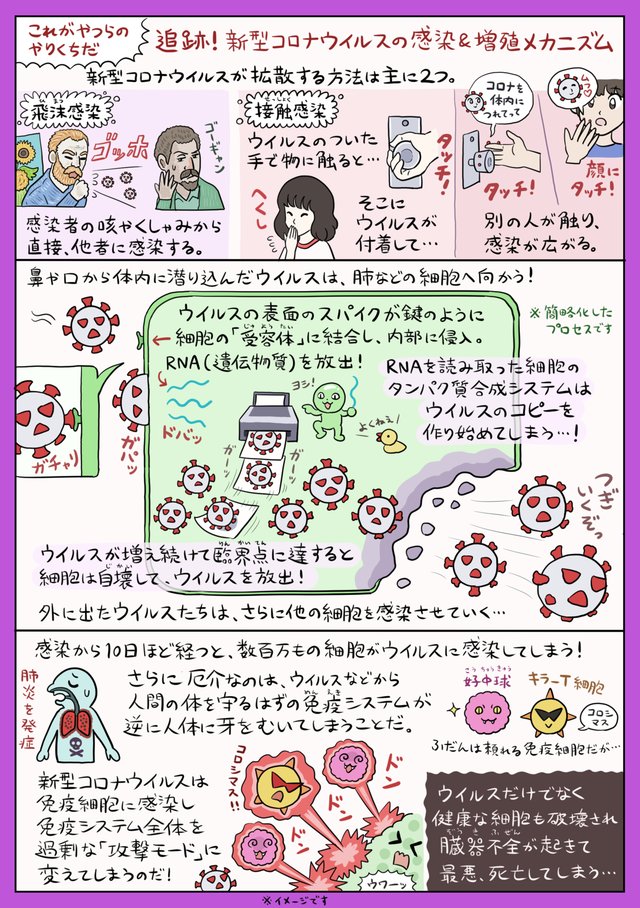 これがやつらの
やりくちだ
追跡!新型コロナウイルスの感染&増殖メカニズム
新型コロナウイルスが拡散する方法は主に2つ。
飛沫感染
ひまつ
ゴッホ
ゴーギャン
感染者の咳やくしゃみから
直接、他者に感染する。
接触感染
せっしょく
ウイルスのついた
手で物に触ると…
タッチ!
へくし
そこに
ウイルスが
付着して…
コロナを
体内に
つれてって
タッチ!
ムフ♡
顔に
タッチ!
別の人が触り、
感染が広がる。
鼻や口から体内に潜り込んだウイルスは、肺などの細胞へ向かう!
※簡略化した
プロセスです
ウイルスの表面のスパイクが鍵のように
じゅようたい
←細胞の「受容体」に結合し、内部に侵入。
RNA(遺伝物質)を放出!
ガチャリ
ガパッ
ドバッ
ヨシ!
よくねえ!
ガーッ
ガーッ
RNAを読み取った細胞の
タンパク質合成システムは
ウイルスのコピーを
作り始めてしまう…!
つぎ
いくぞっ
りんかいてん
ウイルスが増え続けて臨界点に達すると
じかい
細胞は自壊して、ウイルスを放出!
外に出たウイルスたちは、さらに他の細胞を感染させていく…
感染から10日ほど経つと、数百万もの細胞がウイルスに感染してしまう!
肺炎を発症
さらに厄介なのは、ウイルスなどから
めんえき
人間の体を守るはずの免疫システムが
逆に人体に牙をむいてしまうことだ。
こうちゅうきゅう
好中球
キラーT細胞
コロシ
マス
ふだんは頼れる免疫細胞だが…
新型コロナウイルスは
免疫細胞に感染し
免疫システム全体を
過剰な「攻撃モード」に
変えてしまうのだ!
コロシマス!!
ドン
ドン
ドン
ウワーン
ウイルスだけでなく
健康な細胞も破壊され
ぞうきふぜん
臓器不全が起きて
最悪、死亡してしまう…
※イメージです